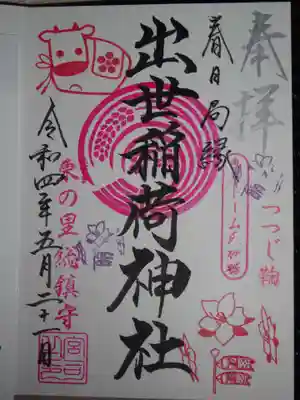 奉拝
春日局縁
出世稲荷神社
つつじ鞠
東の里総鎮守
令和四年五月二十一日